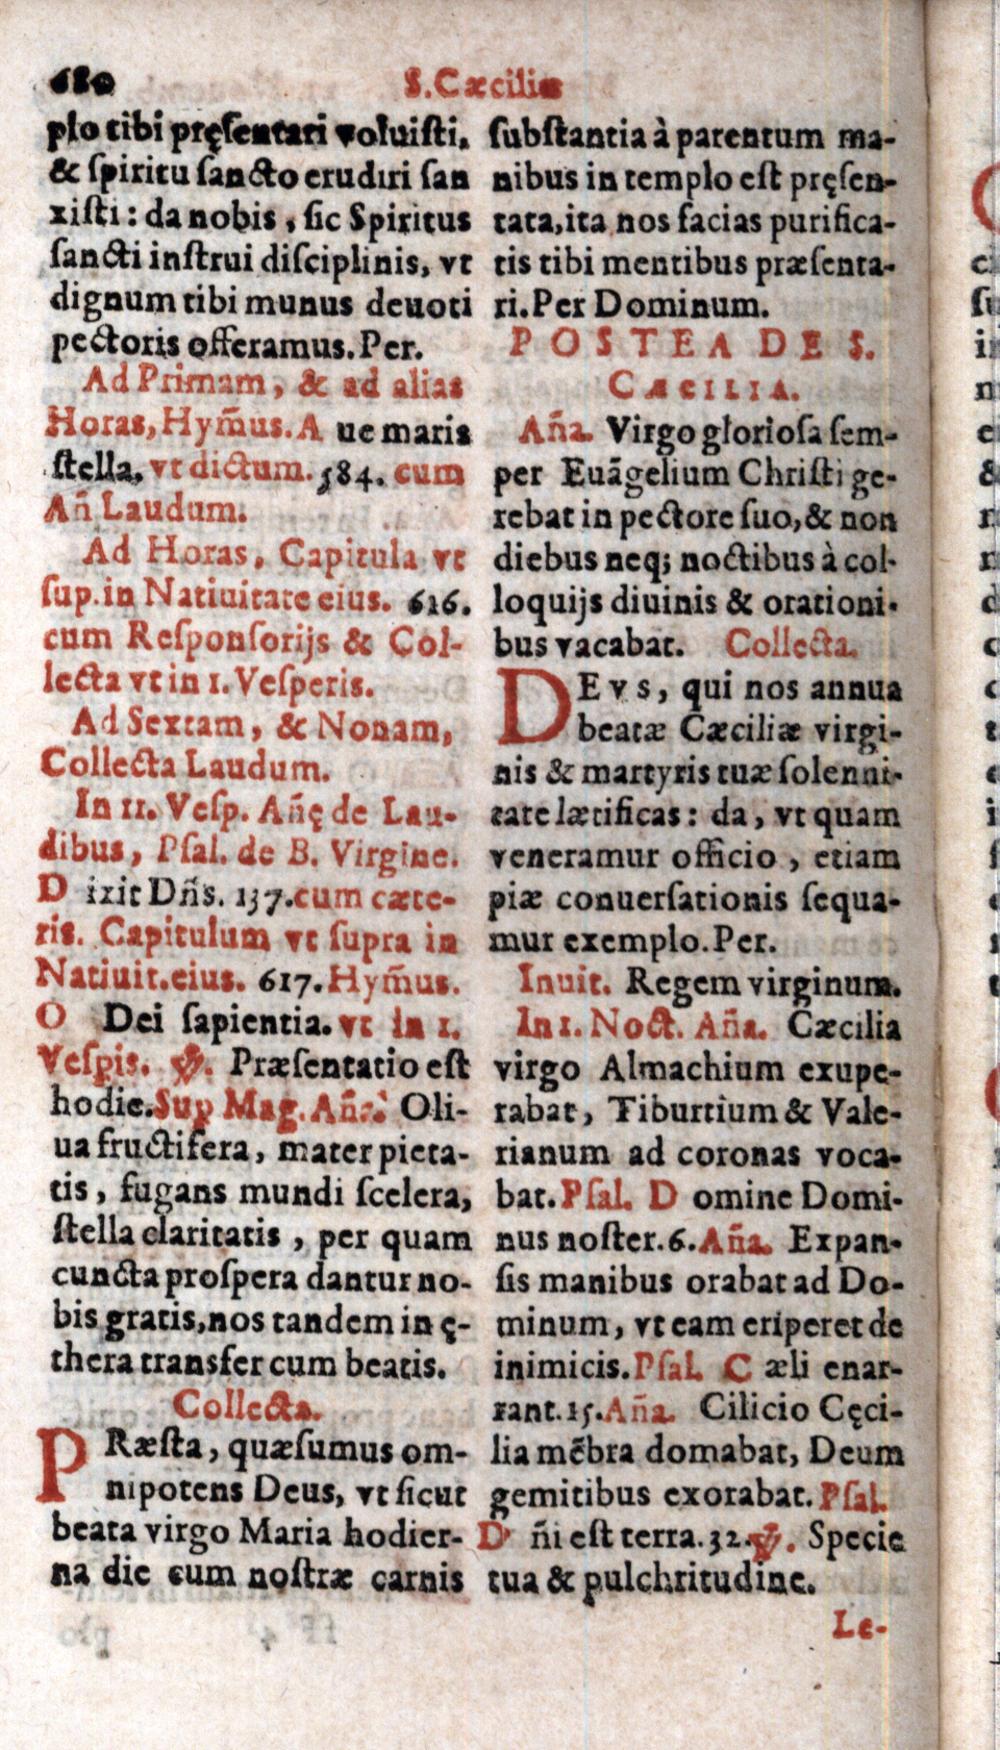 680
S. Cæciliæ
plo tibi pręſentari voluiſti,
& ſpiritu ſancto erudiri ſan
xiſti: da nobis, ſic Spiritus
ſancti inſtrui diſciplinis, vt
dignum tibi munus deuoti
pectoris offeramus. Per.
Ad Primam, & ad alias
Horas, Hym̃us. A ue maris
ſtella, vt dictum. 584. cum
Añ Laudum.
Ad Horas, Capitula vt
ſup. in Natiuitate eius. 616.
cum Reſponſorijs & Col-
lecta vt in 1. Veſperis.
Ad Sextam, & Nonam,
Collecta Laudum.
In 11. Veſp. Añę de Lau-
dibus, Pſal. de B. Virgine.
D ixit Dñs. 137. cum cæte-
ris. Capitulum vt ſupra in
Natiuit. eius. 617. Hym̃us.
O Dei ſapientia. vt in 1.
Veſpis. ℣. Præſentatio eſt
hodie. Sup Mag. Aña: Oli-
ua fructifera, mater pieta-
tis, fugans mundi ſcelera,
ſtella claritatis, per quam
cuncta proſpera dantur no-
bis gratis, nos tandem in ę-
thera transfer cum beatis.
Collecta.
PRæſta, quæſumus om-
nipotens Deus, vt ſicut
beata virgo Maria hodier-
na die cum noſtræ carnis
ſubſtantia à parentum ma-
nibus in templo eſt pręſen-
tata, ita nos facias purifica-
tis tibi mentibus præſenta-
ri. Per Dominum.
POSTEA DE S.
CÆCILIA.
Aña. Virgo glorioſa ſem-
per Euãgelium Chriſti ge-
rebat in pectore ſuo, & non
diebus neq; noctibus à col-
loquijs diuinis & orationi-
bus vacabat. Collecta.
DEVS, qui nos annua
beatæ Cæciliæ virgi-
nis & martyris tuæ ſolenni-
tate lætificas: da, vt quam
veneramur officio, etiam
piæ conuerſationis ſequa-
mur exemplo. Per.
Inuit. Regem virginum.
In 1. Noct. Aña. Cæcilia
virgo Almachium exupe-
rabat, Tiburtium & Vale-
rianum ad coronas voca-
bat. Pſal. D omine Domi-
nus noſter. 6. Aña. Expan-
ſis manibus orabat ad Do-
minum, vt eam eriperet de
inimicis. Pſal. C æli enar-
rant. 15. Aña. Cilicio Cęci-
lia mẽbra domabat, Deum
gemitibus exorabat. Pſal.
D ñi eſt terra. 32. ℣. Specie
tua & pulchritudine.
Le-